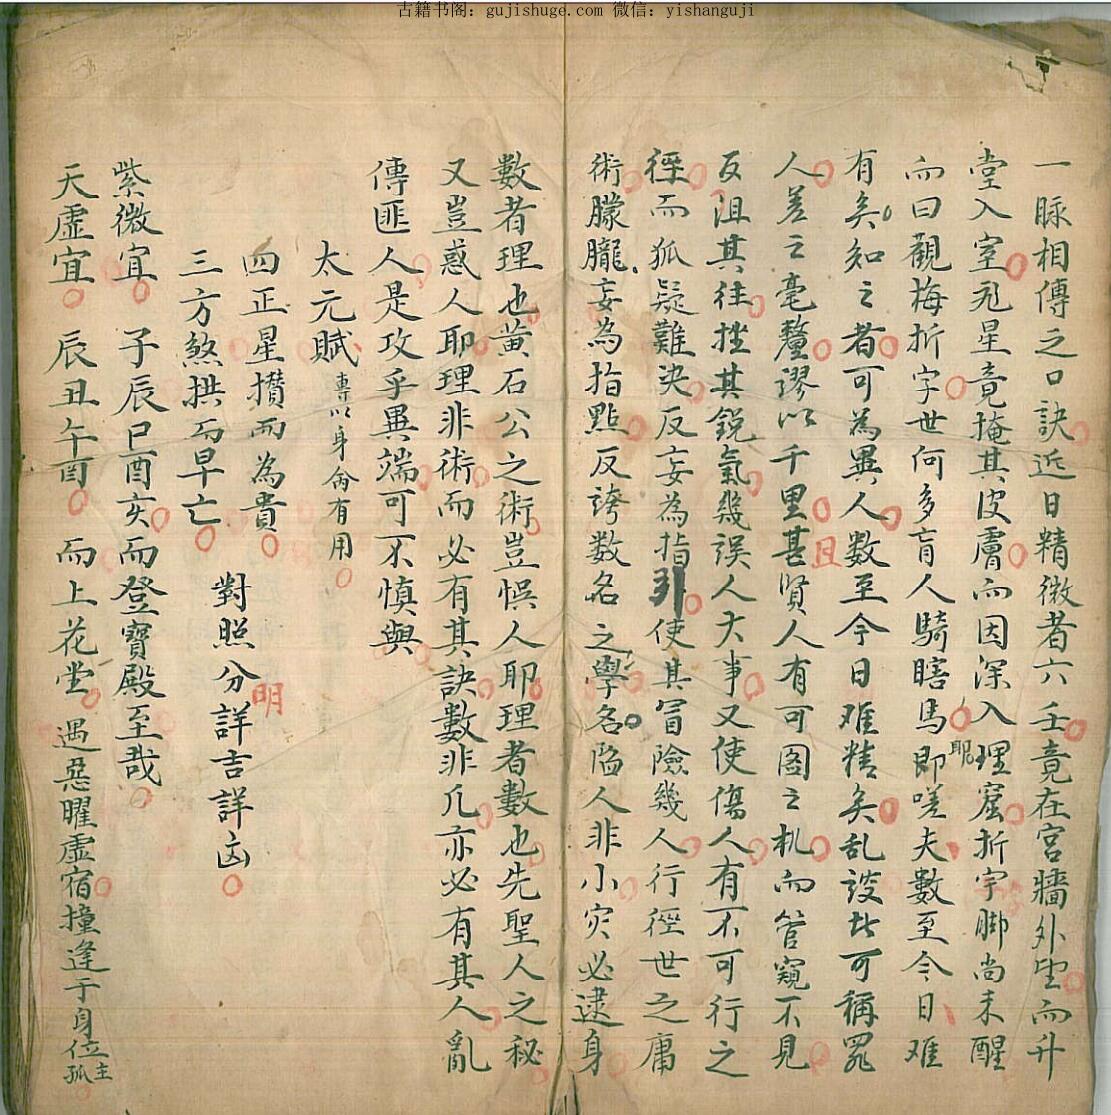 古籍书阁：gujishuge.com 微信：yishanguji
一脉相傳之口訣近日精微者六壬竟在宮牆外望而升
堂入室*星竟掩其皮膚而因深入理窟折字脚尚未醒
而曰觀梅折字世何多盲人騎瞎馬即嗟夫數至今日难
耶
有矣知之者可為異人數至今日难精矣乱談皆可稱罪
人差之毫釐謬以千里甚賢人有可図之机而管窺不見
且
反阻其往挫其銳氣幾誤人大事又使傷人有不可行之
徑而狐疑難决反妄為指引使其冒險幾人行徑世之庸
術朦朧妄為指點反誇数名之學名陷人非小灾必逮身
數者理也黄石公之術豈悞人耶理者數也先聖人之秘
又豈惑人耶理非術而必有其訣數非凡亦必有其人亂
傳匪人是攻乎異端可不慎與
太元賦 專以身命有用
四正星攢而為貴
三方煞拱而早亡
對照分詳吉詳凶
明
紫微宜 子辰巳酉亥而登寶殿至哉
天虛宜 辰丑午酉 而上花堂 遇惡曜虛宿撞逢于身位主孤